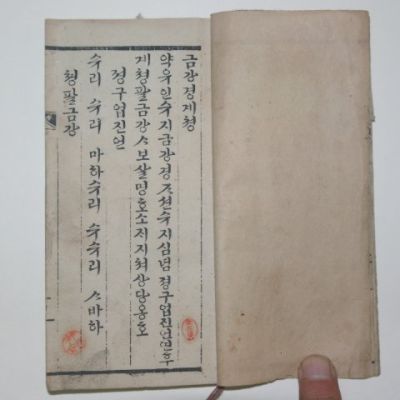 금강경계쳥
약유인수지금강경즈션수지심념졍구업진언연후
계쳥팔금강스보살명호소저지쳐상당옹호
졍구업진언
수리 수리 마하수리 수수리 스바하
쳥팔금강